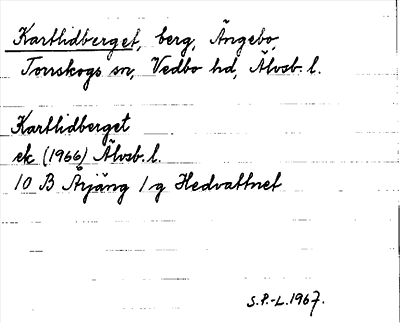 Kartlidberget, berg, Ängebo,
Torrskogs sn, Vedbo hd, Älvsb. l.
Kartlidberget
ek (1966) Älvsb. l.
10 B Årjäng 1g Hedvattnet
S.P.-L. 1967.